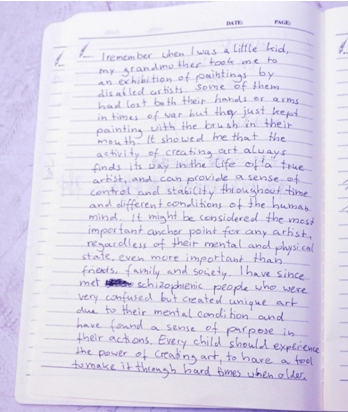 DATE: PAGE:
I remember when I was a little kid,
my grandmother took me to
an exhibition of paintings by
disabled artists. Some of them
had lost both their hands or arms
in times of war but they just kept
painting with the brush in their
mouth. It showed me that the
activity of creating art always
finds its way in the life of a true
artist, and can provide a sense of
control and stability throughout time
and different conditions of the human
mind. It might be considered the most
important anchor point for any artist,
regardless of their mental and physical
state, even more important than
friends, family and society. I have since
met schizophrenic people who were
very confused but created unique art
due to their mental condition and
have found a sense of purpose in
their actions. Every child should experience
the power of creating art, to have a tool
to make it through hard times when older.